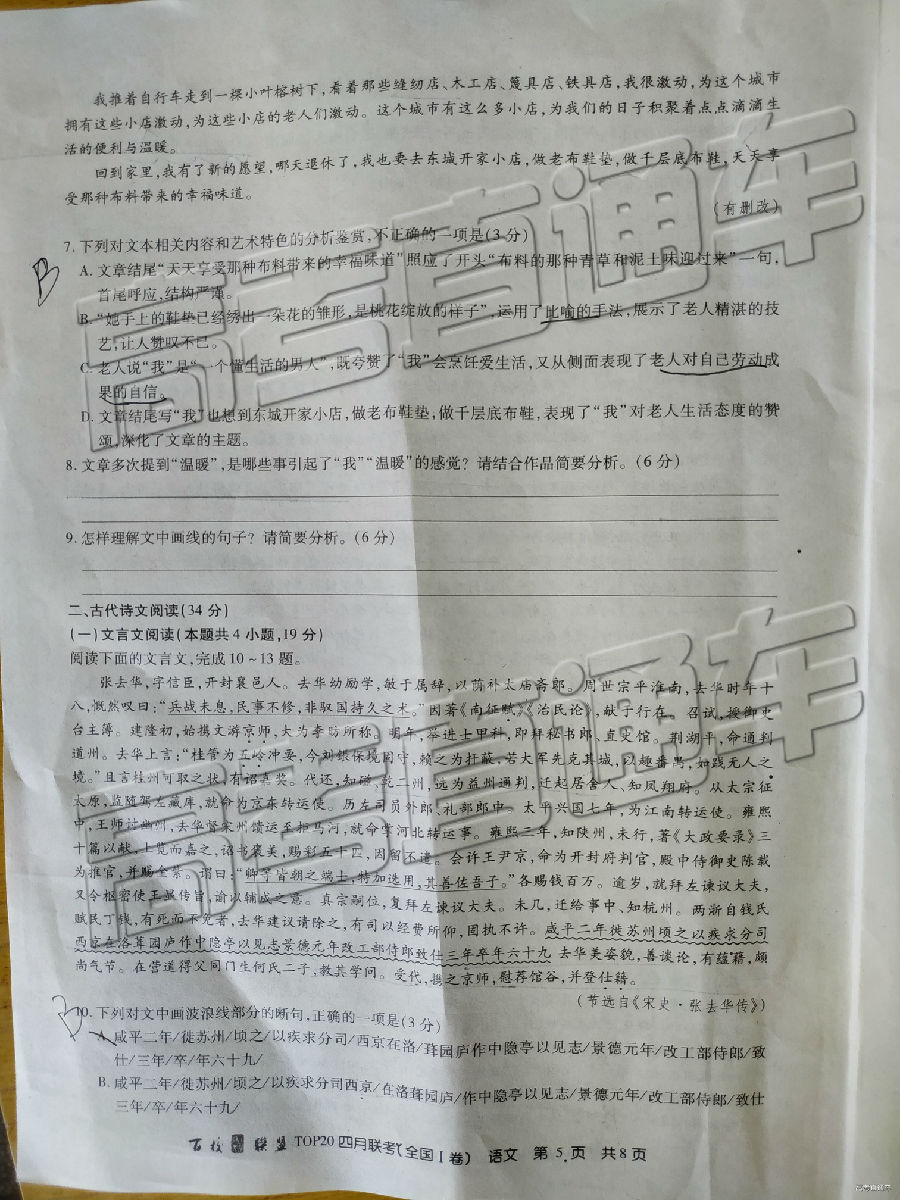 我推着自行车走到一棵小叶榕树下,看着那些缝纫店、木工店、篾具店、铁具店,我很激动,为这个城市
拥有这些小店激动,为这些小店的老人们激动。这个城市有这么多小店,为我们的日子积聚着点点滴滴生
活的便利与温暖。
回到家里,我有了新的愿望,哪天退休了,我也要去东城开家小店,做老布鞋垫,做千层底布鞋,天天享
受那种布料带来的幸福味道。
(有删改)
7. 下列对文本相关内容和艺术特色的分析鉴赏,不正确的一项是(3 分)
B
A. 文章结尾“天天享受那种布料带来的幸福味道”照应了开头“布料的那种青草和泥土味迎过来”一句,
首尾呼应,结构严谨。
B. “她手上的鞋垫已经绣出一朵花的雏形,是桃花绽放的样子”,运用了比喻的手法,展示了老人精湛的技
艺,让人赞叹不已。
C. 老人说“我”是“一个懂生活的男人”,既夸赞了“我”会烹饪爱生活,又从侧面表现了老人对自己劳动成
果的自信。
D. 文章结尾写“我”也想到东城开家小店,做老布鞋垫,做千层底布鞋,表现了“我”对老人生活态度的赞
颂,深化了文章的主题。
8. 文章多次提到“温暖”,是哪些事引起了“我”“温暖”的感觉? 请结合作品简要分析。(6 分)
9. 怎样理解文中画线的句子? 请简要分析。(6 分)
二、古代诗文阅读(34 分)
(一)文言文阅读(本题共 4 小题,19 分)
阅读下面的文言文,完成 10~13 题。
张去华,字信臣,开封襄邑人。去华幼励学,敏于属辞,以荫补太庙斋郎。周世宗平淮南,去华时年十
八,慨然叹曰:“兵战未息,民事不修,非驭国持久之术。”因著《南征赋》《治民论》,献于行在。召试,授御史
台主簿。建隆初,始携文游京师,大为李昉所称。明年,举进士甲科,即拜秘书郎、直史馆。荆湖平,命通判
道州。去华上言:“桂管为五岭冲要,今刘鋹保境固守,赖之为扞蔽,若大军先克其城,以趣番禺,如践无人之
境。”且言桂州可取之状,有诏嘉奖。代还,知磁、乾二州,选为益州通判,迁起居舍人、知凤翔府。从太宗征
太原,监随驾左藏库,就命为京东转运使。历左司员外郎、礼部郎中。太平兴国七年,为江南转运使。雍熙
中,王师讨幽州,去华督宋州馈运至拒马河,就命掌河北转运事。雍熙三年,知陕州,未行,著《大政要录》三
十篇以献,上览而嘉之,诏书褒美,赐彩五十匹,因留不遣。会许王尹京,命为开封府判官,殿中侍御史陈载
为推官,并赐金紫。谓曰:“卿等皆朝之端士,特加选用,其善佐吾子。”各赐钱百万。逾岁,就拜左谏议大夫,
又令枢密使王显传旨,谕以辅成之意。真宗嗣位,复拜左谏议大夫。未几,迁给事中、知杭州。两浙自钱氏
赋民丁钱,有死而不免者,去华建议请除之,有司以经费所仰,固执不许。咸平二年徙苏州顷之以疾求分司
西京在洛葺园庐作中隐亭以见志景德元年改工部侍郎致仕三年卒年六十九 去华美姿貌,善谈论,有蕴藉,颇
尚气节。在营道得父同门生何氏二子,教其学问。受代,携之京师,慰荐馆谷,并登仕籍。
(节选自《宋史·张去华传》)
B
10. 下列对文中画波浪线部分的断句,正确的一项是(3 分)
A. 咸平二年/徙苏州/顷之/以疾求分司/西京在洛/葺园庐作中隐亭以见志/景德元年/改工部侍郎/致
仕/三年/卒/年六十九/
B. 咸平二年/徙苏州/顷之/以疾求分司西京/在洛葺园庐/作中隐亭以见志/景德元年/改工部侍郎/致仕
三年/卒/年六十九/
百校联盟 TOP20 四月联考(全国Ⅰ卷) 语文 第 5 页 共 8 页
高考直通车
高考直通车
高考直通车